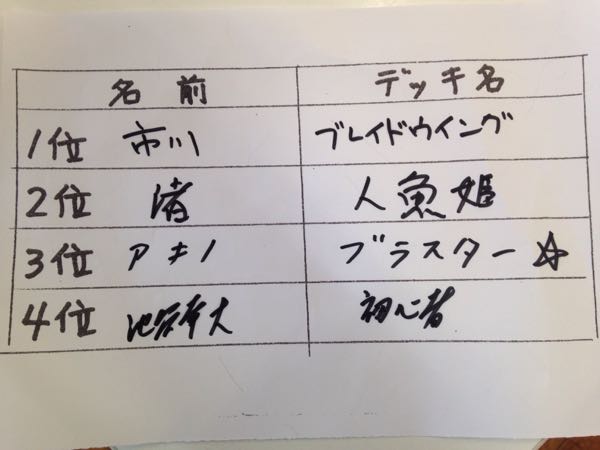 名前 デッキ名
1位 市川 ブレイドウイング
2位 渚 人魚姫
3位 アキノ ブラスター☆
4位 初心者